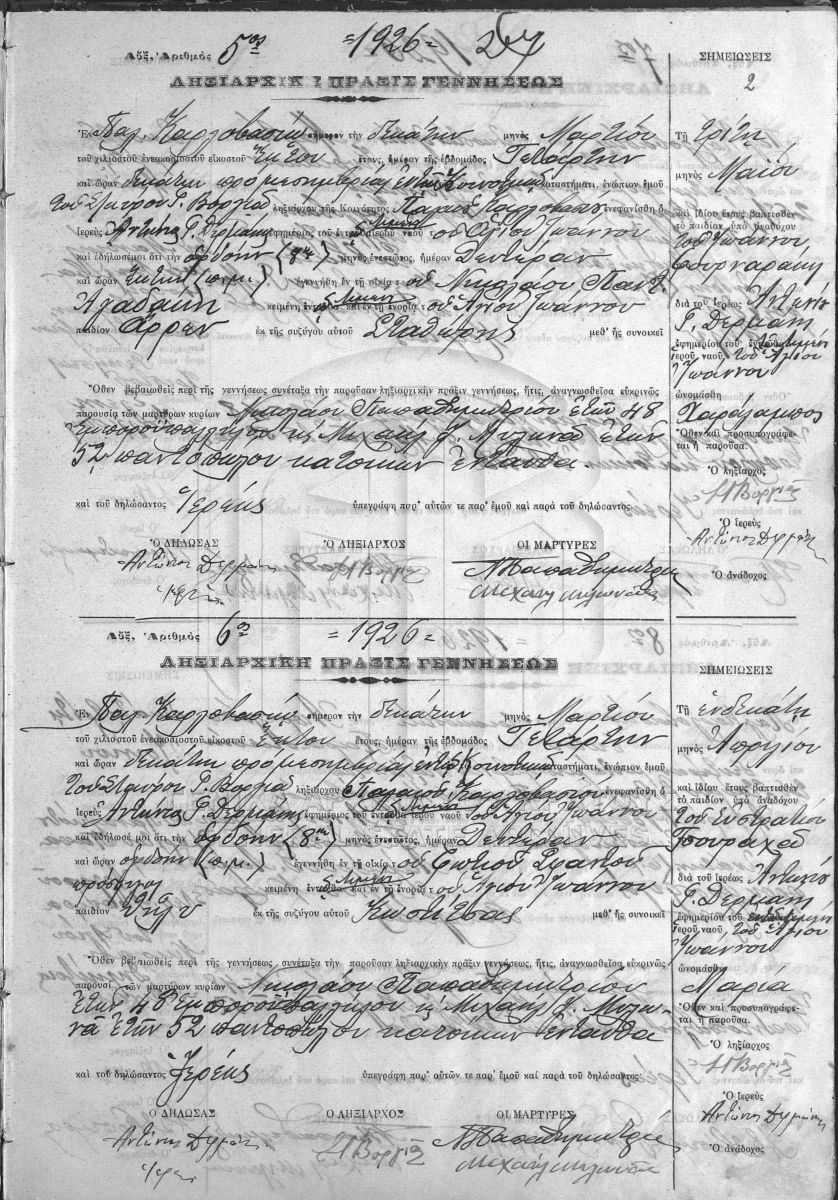 Αὔξ. Ἀριθμὸς 5ος =1926=
ΛΗΞΙΑΡΧΙΚΗ ΠΡΑΞΙΣ ΓΕΝΝΗΣΕΩΣ
Ἐν Παλ. Καρλοβασίῳ σήμερον τὴν δεκάτην μηνὸς Μαρτίου
τοῦ χιλιοστοῦ ἐνεακοσιοστοῦ εἰκοστοῦ ἕκτου ἔτους, ἡμέραν τῆς ἑβδομάδος Τετάρτην
καὶ ὥραν δεκάτην πρὸ μεσημβρίας ἐν τῷ Κοινοτικῷ καταστήματι, ἐνώπιον ἐμοῦ
τοῦ Σταύρου Γ. Βοργιᾶ ληξιάρχου τῆς Κοινότητος Παλαιοῦ Καρλοβασίου ἐνεφανίσθη ὁ
Ἱερεὺς Ἀντώνιος Γ. Δερμάνης ἐφημέριος τοῦ ἐνταῦθα Λιμένος ἱεροῦ ναοῦ τοῦ Ἁγίου Ἰωάννου
καὶ ἐδήλωσέ μοι ὅτι τὴν ὀγδόην (8ην) μηνὸς ἐνεστῶτος, ἡμέραν Δευτέραν
καὶ ὥραν ἕκτην (π.μ.) ἐγεννήθη ἐν τῇ οἰκίᾳ τοῦ Νικολάου Παντ.
κειμένῃ ἐνταῦθα Λιμένι καὶ ἐν τῇ ἐνορίᾳ τοῦ Ἁγίου Ἰωάννου
παιδίον ἄρρεν ἐκ τῆς συζύγου αὐτοῦ μεθ' ἧς συνοικεῖ
Ὅθεν βεβαιωθεὶς περὶ τῆς γεννήσεως συνέταξα τὴν παροῦσαν ληξιαρχικὴν πρᾶξιν γεννήσεως, ἥτις, ἀναγνωσθεῖσα εὐκρινῶς
παρουσίᾳ τῶν μαρτύρων κυρίων Νικολάου Παπαδημητρίου ἐτῶν 48
ἐμποροϋπαλλήλου κ Μιχαὴλ Ἰ. Μυλωνᾶ ἐτῶν
52 παντοπώλου κατοίκων ἐνταῦθα.
καὶ τοῦ δηλώσαντος Ἱερέως ὑπεγράφη παρ' αὐτῶν τε παρ' ἐμοῦ καὶ παρὰ τοῦ δηλώσαντος
Ὁ ΔΗΛΩΣΑΣ Ὁ ΛΗΞΙΑΡΧΟΣ ΟΙ ΜΑΡΤΥΡΕΣ
Ἀντώνιος Δερμάνης Βοργιᾶς Ν Παπαδημητρίου
Ἱερεὺς Μιχαὴλ Μυλωνᾶς
ΣΗΜΕΙΩΣΕΙΣ
2
Τῇ τρίτῃ
μηνὸς Μαΐου
καὶ ἰδίου ἔτους βαπτισθὲν
τὸ παιδίον ὑπὸ ἀναδόχου
τοῦ Ἰωάννου
Φουρναράκη
διὰ τοῦ ἱερέως Ἀντωνίου
Γ. Δερμάνη
ἐφημερίου τοῦ ἐνταῦθα Λιμένι
ἱεροῦ ναοῦ τοῦ Ἁγίου
Ἰωάννου
ὠνομάσθη
Χαράλαμπος
Ὅθεν καὶ προσυπογράφεται
ἡ παροῦσα.
Ὁ ληξίαρχος
Βοργιᾶς
Ὁ ἱερεὺς
Ἀντώνιος Δερμάνης
Ὁ ἀνάδοχος
Αὔξ. Ἀριθμὸς 6η =1926=
ΛΗΞΙΑΡΧΙΚΗ ΠΡΑΞΙΣ ΓΕΝΝΗΣΕΩΣ
Ἐν Παλ. Καρλοβασίῳ σήμερον τὴν δεκάτην μηνὸς Μαρτίου
τοῦ χιλιοστοῦ ἐνεακοσιοστοῦ εἰκοστοῦ ἕκτου ἔτους, ἡμέραν τῆς ἑβδομάδος Τετάρτην
καὶ ὥραν δεκάτην πρὸ μεσημβρίας ἐν τῷ Κοινοτικῷ καταστήματι, ἐνώπιον ἐμοῦ
τοῦ Σταύρου Γ. Βοργιᾶ ληξιάρχου Παλαιοῦ Καρλοβασίου ἐνεφανίσθη ὁ
Ἱερεὺς Ἀντώνιος Γ. Δερμάνης ἐφημέριος τοῦ ἐνταῦθα Λιμένος ἱεροῦ ναοῦ τοῦ Ἁγίου Ἰωάννου
καὶ ἐδήλωσέ μοι ὅτι τὴν ὀγδόην (8ην) μηνὸς ἐνεστῶτος, ἡμέραν Δευτέραν
καὶ ὥραν ὀγδόην (π.μ.) ἐγεννήθη ἐν τῇ οἰκίᾳ τοῦ Φωτίου
πρόσφυγος κειμένῃ ἐνταῦθα Λιμένι καὶ ἐν τῇ ἐνορίᾳ τοῦ Ἁγίου Ἰωάννου
παιδίον θῆλυ ἐκ τῆς συζύγου αὐτοῦ Κωστίτσας μεθ' ἧς συνοικεῖ
Ὅθεν βεβαιωθεὶς περὶ τῆς γεννήσεως συνέταξα τὴν παροῦσαν ληξιαρχικὴν πρᾶξιν γεννήσεως, ἥτις, ἀναγνωσθεῖσα εὐκρινῶς
παρουσίᾳ τῶν μαρτύρων κυρίων Νικολάου Παπαδημητρίου
ἐτῶν 48 ἐμποροϋπαλλήλου κ Μιχαὴλ Ἰ. Μυλω-
νᾶ ἐτῶν 52 παντοπώλου κατοίκων ἐνταῦθα
καὶ τοῦ δηλώσαντος Ἱερέως ὑπεγράφη παρ' αὐτῶν τε παρ' ἐμοῦ καὶ παρὰ τοῦ δηλώσαντος:
Ὁ ΔΗΛΩΣΑΣ Ὁ ΛΗΞΙΑΡΧΟΣ ΟΙ ΜΑΡΤΥΡΕΣ
Ἀντώνιος Δερμάνης Βοργιᾶς Ν Παπαδημητρίου
Ἱερεὺς Μιχαὴλ Μυλωνᾶς
ΣΗΜΕΙΩΣΕΙΣ
Τῇ ἑνδεκάτῃ
μηνὸς Ἀπριλίου
καὶ ἰδίου ἔτους βαπτισθὲν
τὸ παιδίον ὑπὸ ἀναδόχου
τοῦ Εὐστρατίου
διὰ τοῦ ἱερέως Ἀντωνίου
Γ. Δερμάνη
ἐφημερίου τοῦ ἐνταῦθα Λιμένι
ἱεροῦ ναοῦ τοῦ Ἁγίου
Ἰωάννου
ὠνομάσθη
Μαρία
Ὅθεν καὶ προσυπογράφεται
ἡ παροῦσα.
Ὁ ληξίαρχος
Βοργιᾶς
Ὁ ἱερεὺς
Ἀντώνιος Δερμάνης
Ὁ ἀνάδοχος